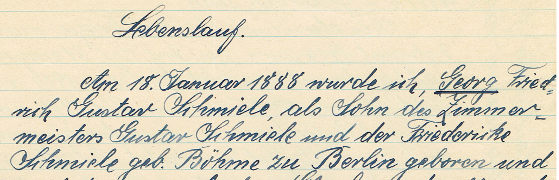 Lebenslauf.
Am 18. Januar 1888 wurde ich, Georg Fried-
rich Gustav Schmiele, als Sohn des Zimmer-
meisters Gustav Schmiele und der Friedericke
Schmiele geb. Böhme zu Berlin geboren und